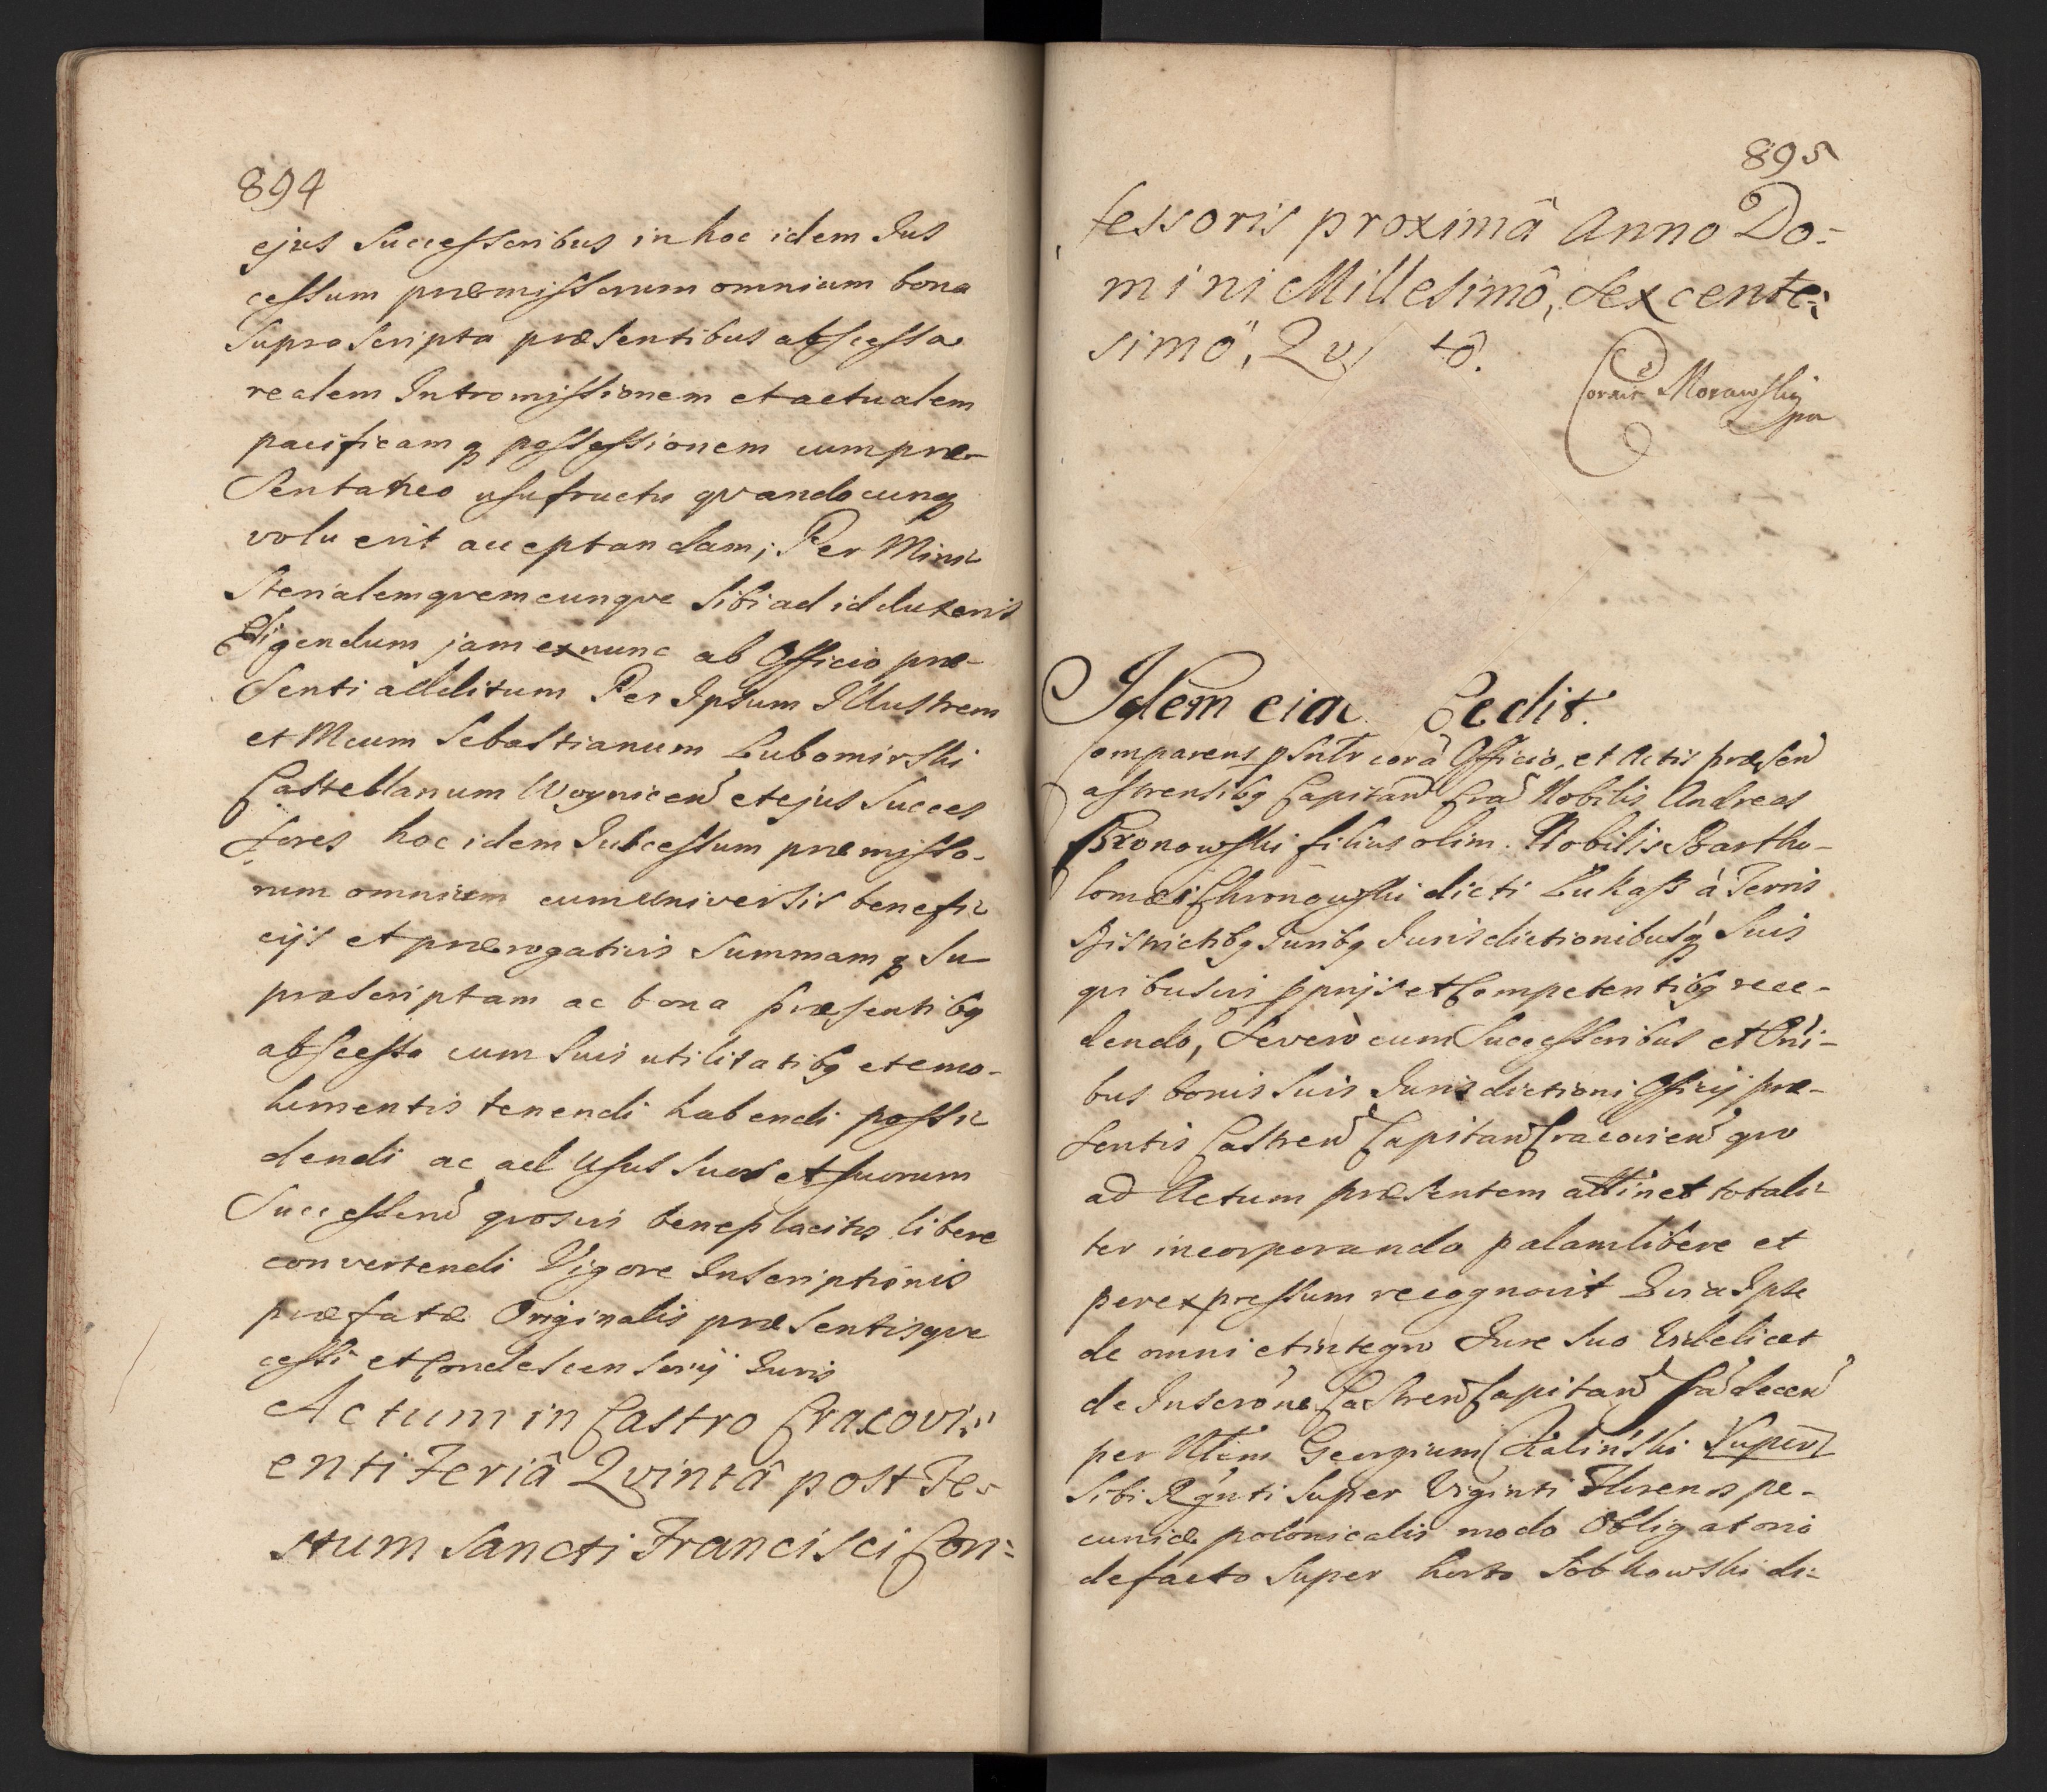 894
ejus Successoribus in hoc idem Jus
cessum præmissorum omnium bona
Suprascripta præsentibus abscessa
realem Intromissionem et actualem
pacificamq possessionem cum præ-
Sentaneo usufructu qvandocunq
voluerit acceptandam; Per Mini-
Sterialem qvemcunqve Sibi ad id duxerit
Eligendum jam ex nunc ab Officio præ-
Senti additum Per Ipsum Illustrem
et Mcum Sebastianum Lubomirski
Castellanum Woynicen̄ et ejus Succes
Sores hoc idem Juscessum præmisso-
rum omnium cum universis benefi-
cijs et prærogativis Summamq Su-
prascriptam ac bona præsentibq
abscessa cum Suis utilitatibq et emo-
lumentis tenendi habendi possi-
dendi ac ad Usus Suos et Suorum
Successorū qvosvis beneplacitos libere
convertendi Vigore Inscriptionis
præfatæ Originalis præsentisqve
cessi et Condescensorij Juris
Actum in Castro Cracovi-
enti Feriâ Qvintâ post Fe-
stum Sancti Francisci Con-
895
fessoris proximâ Anno Do-
mini Millesimô, Sexcente-
simô, Qv tô.
Morawski
mpr
Idem eia Cedit.
Comparens psntr corā Officio, et Actis præsen̄
astrensibq Capitan̄ Cra Nobilis Andreas
Bronowski filius olim Nobilis Bartho-
lomæi Chronowski dicti Lukasz à Terris
Districtibq Juribq Jurisdictionibusq Suis
qvibusvis pprijs et Competentibq rece-
dendo, Severò cum Successoribus et Oni-
bus bonis Suis Jurisdictioni Officij præ-
sentis Castren̄ Capitan̄ Cracovien̄ qvo
ad Actum præsentem attinet totali-
ter incorporando palam libere et
per expressum recognovit Qvia Ipse
de omni et integro Jure Suo Videlicet
de Inscrōne Castren̄ Capitan̄ Cra decen̄
per Georgium Kalinski Super
Sibi Rgnti Super Viginti Florenos pe-
cuniæ polonicalis modo Obligatorio
de facto Super horto Sobkowski di-